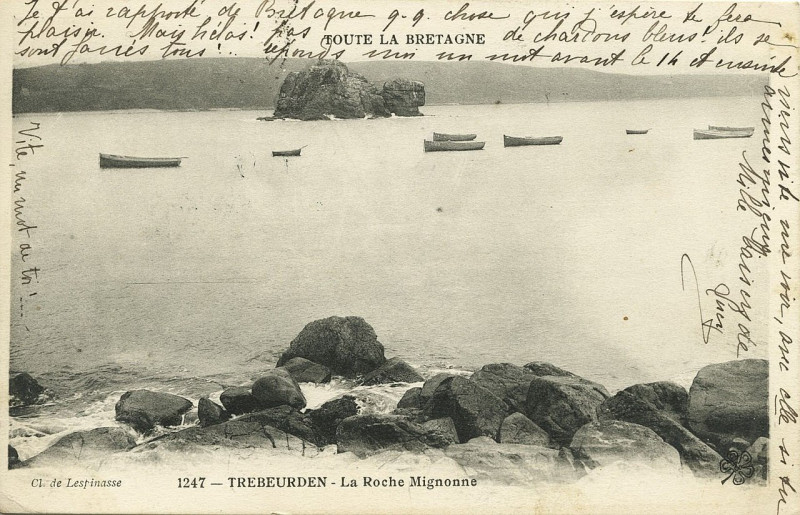 Je t'ai rapporté de Bretagne q.q. chose qui j'espère te fera
plaisir. Mais hélas! pas de chardons bleus! ils se
sont fanés tous!.. Réponds moi un mot avant le 14 et ensuite
TOUTE LA BRETAGNE
viens vite me voir, avec elle si tu
Mille baisers de
Vite, un mot de toi!...
Cl. de Lespinasse
1247 — TREBEURDEN - La Roche Mignonne